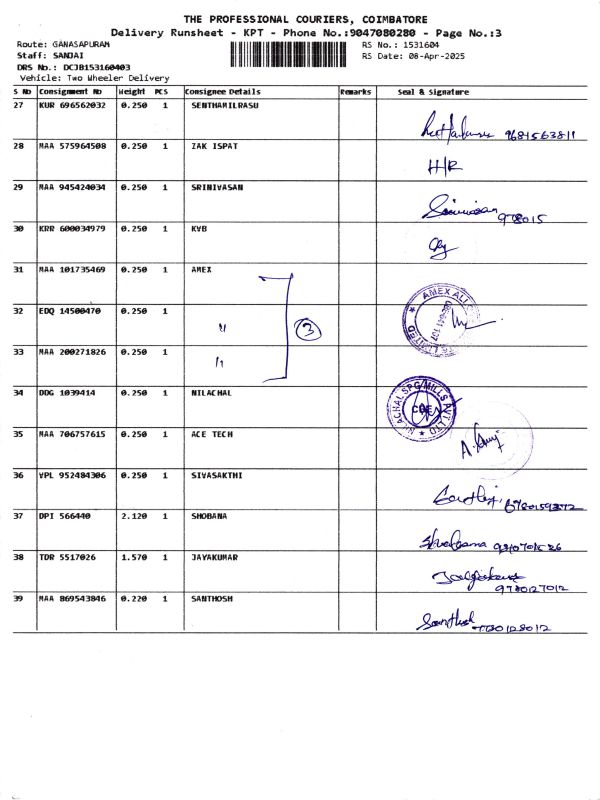 THE PROFESSIONAL COURIERS, COIMBATORE
Delivery Runsheet - KPT - Phone No.:9047080280 - Page No.:3
Route: GANASAPURAM RS No.: 1531604
Staff: SANJAI RS Date: 08-Apr-2025
DRS No.: DCJB153160403
Vehicle: Two Wheeler Delivery
S No Consignment No Weight PCS Consignee Details Remarks Seal & Signature
27 KUR 696562032 0.250 1 SENTHAMILRASU
9681563811
28 MAA 575964508 0.250 1 ZAK ISPAT
H/R
29 MAA 945424034 0.250 1 SRINIVASAN
Srinivasan 978015
30 KRR 600034979 0.250 1 KVB
31 MAA 101735469 0.250 1 AMEX
32 EDQ 14500470 0.250 1 〃
3
AMEX ALL
LIMITED
33 MAA 200271826 0.250 1 〃
34 DDG 1039414 0.250 1 NILACHAL
NILACHAL SPG MILLS PVT LTD
35 MAA 706757615 0.250 1 ACE TECH
36 VPL 952484306 0.250 1 SIVASAKTHI
37 DPI 566440 2.120 1 SHOBANA
38 TDR 5517026 1.570 1 JAYAKUMAR
978027012
39 MAA 869543846 0.220 1 SANTHOSH
Santhosh